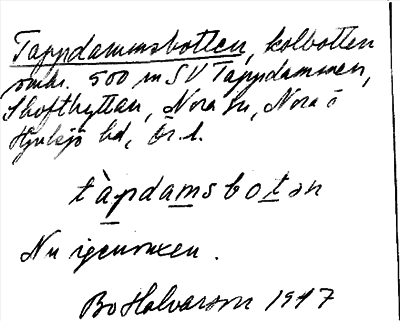 Tappdammsbotten, kolbotten
omkr. 500 m SV Tappdammen,
Skofthyttan, Nora sn, Nora o
Hjulsjö bd, Ör. l.
tàpdamsbotən
Nu igenvuxen.
Bo Halvarson 1947